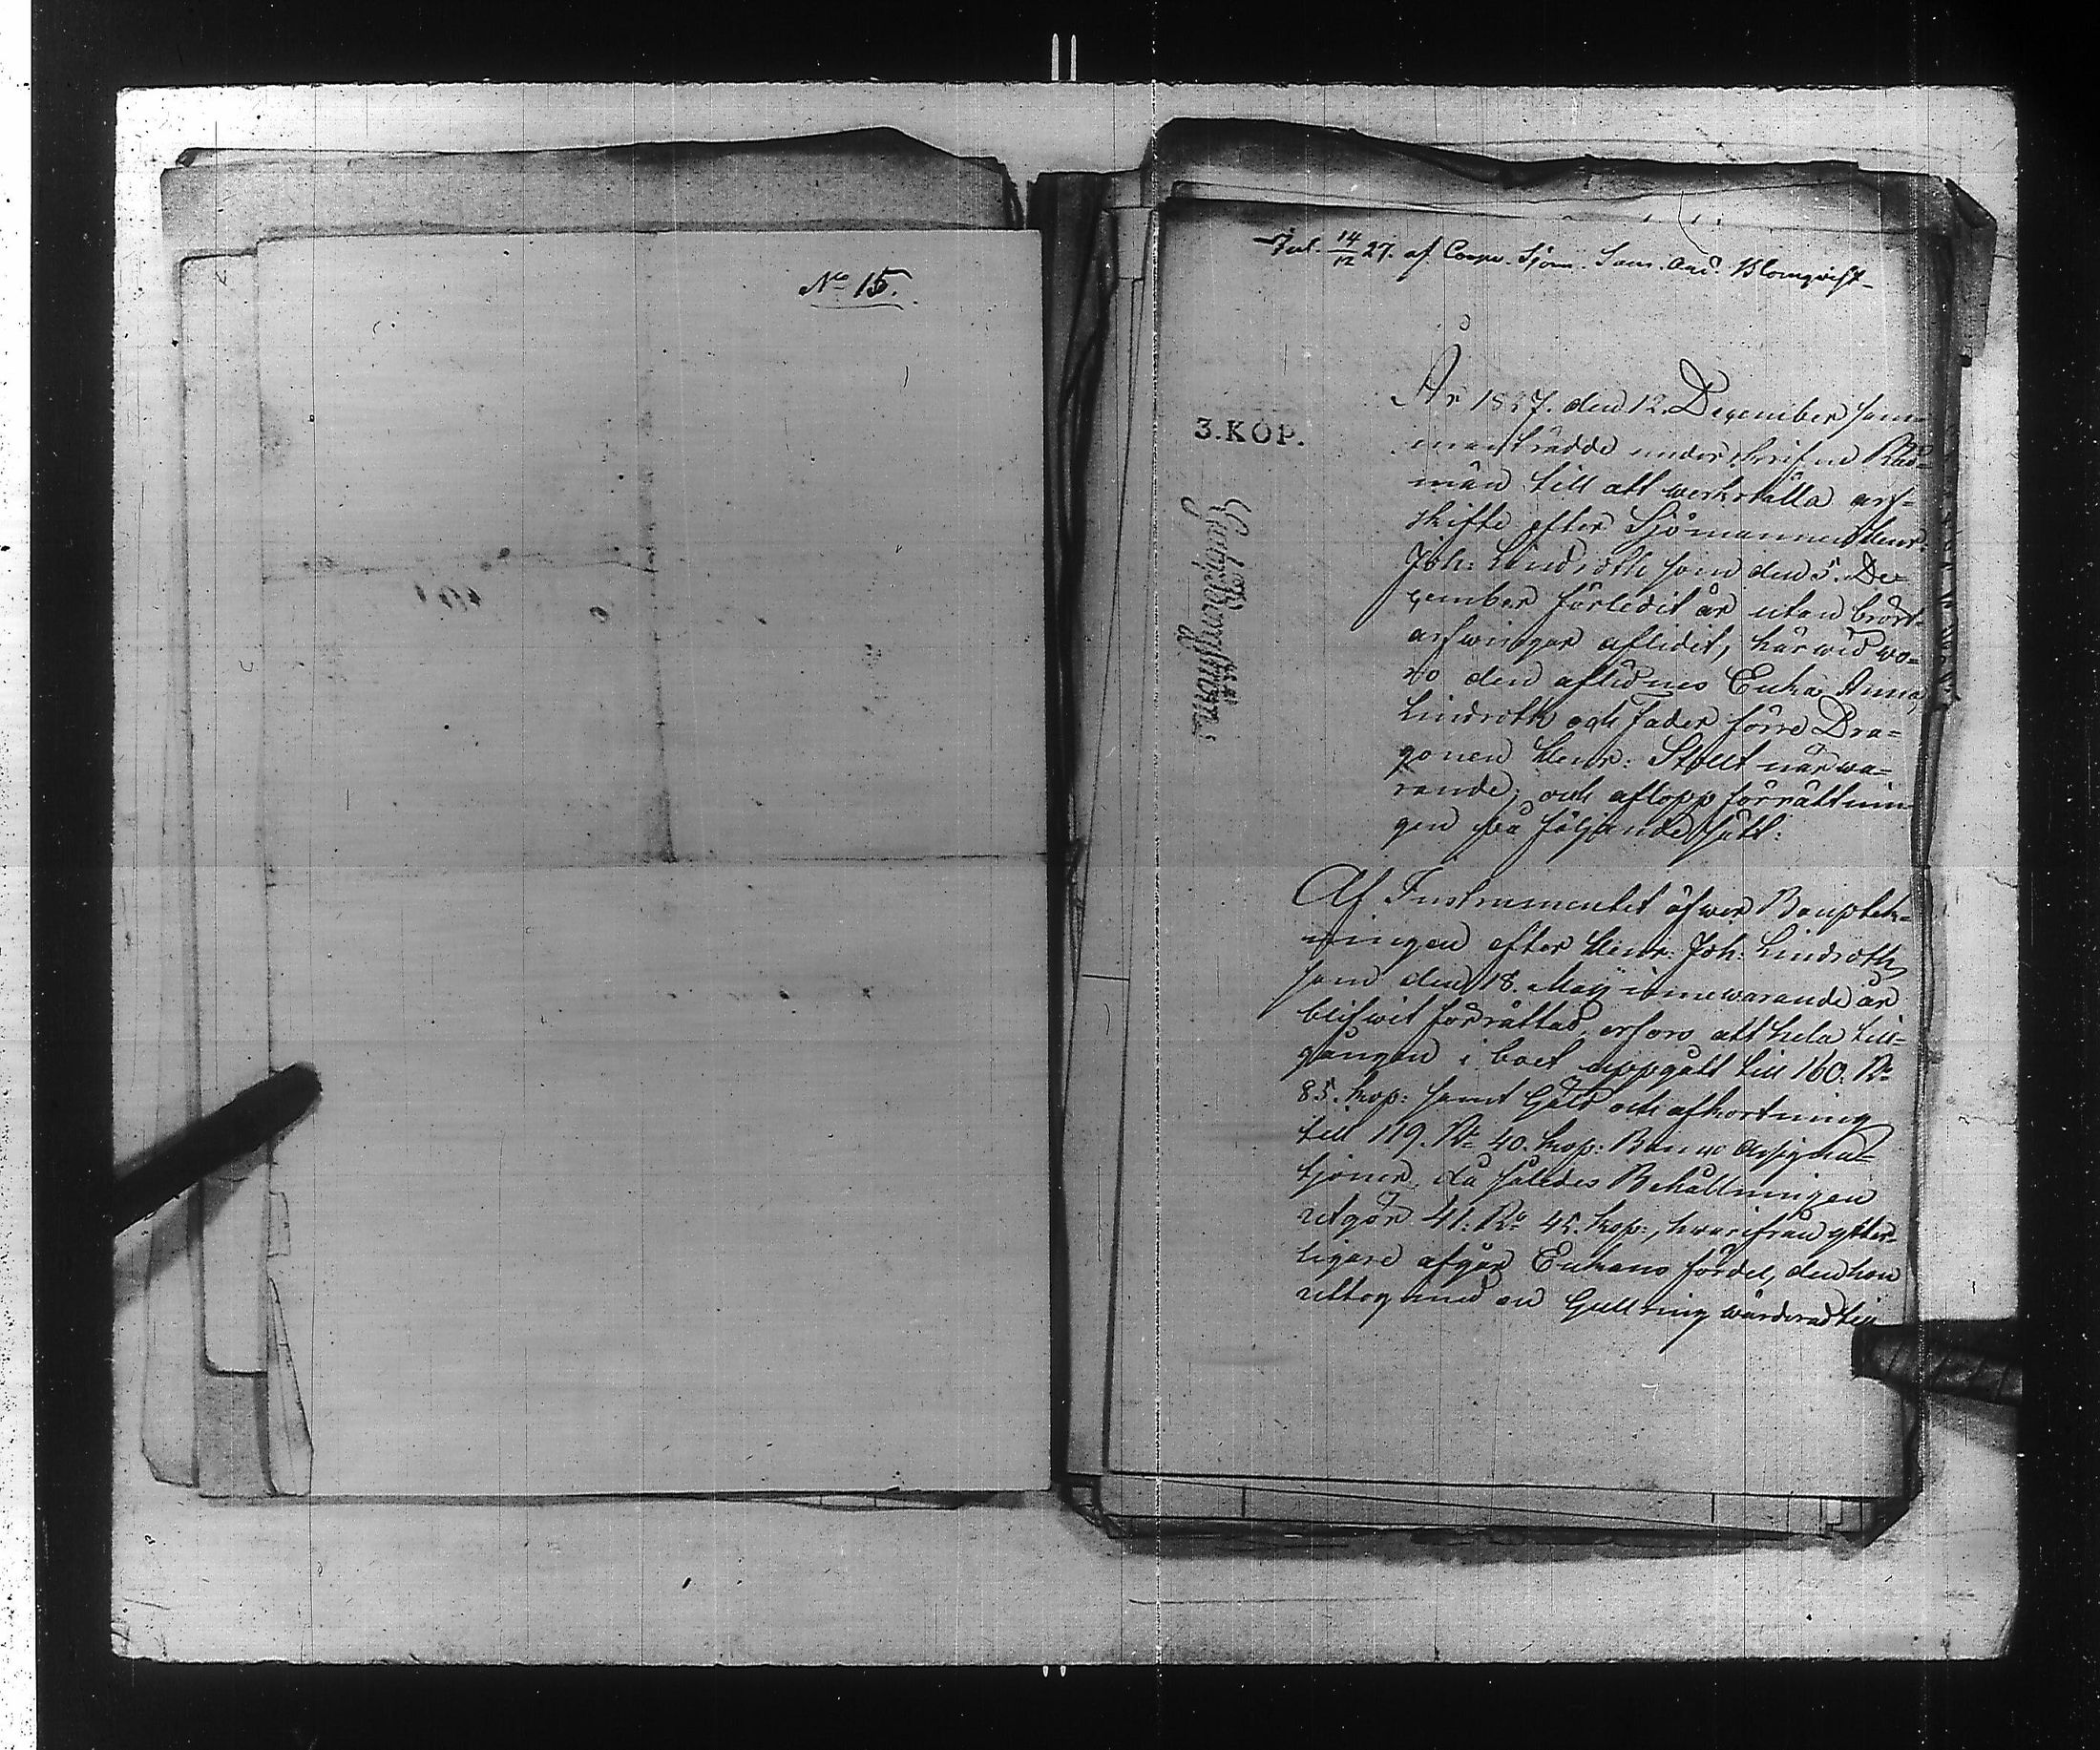 No 15.
Inl. 14/12 27. af Coopv. Sjöm. Sam. And. Blomqvist
3.KOP.
År 1827. den 12. December sam-
manträdde underskrifne Råd=
män till att werkställa arf=
skifte efter Sjömannen Henr:
Joh: Lindroth som den 5. De=
cember förledit år utan bröst-
arfwingar aflidit, härwid wo=
ro den aflidnes Enka Anna
Lindroth och fader förre Dra=
gonen Henr: Stolt närwa=
rande; och aflopp förrättnin-
gen på följande sätt:
Af Instrumentet öfwer Boupteck=
ningen efter Henr: Joh: Lindroth
som den 18. Maji innewarande år
blifwit förrättad, erfors att hela till=
gången i boet uppgått till 160. Ro
85. kop: samt Gäld och afkortning
till 119. Ro 40. kop: Banco Assigna=
tjoner, då således Behållningen
utgör 41: Ro 45. kop:, hwarifrån ytter-
ligare afgår Enkans fördel, den hon
uttog med en Gullring wärderad till